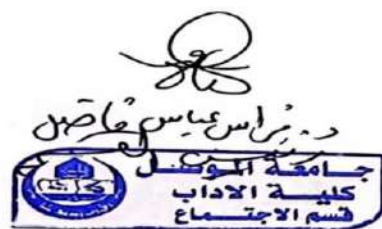 د. فراس عباس فاضل
جامعة الموصل
كلية الاداب
قسم الاجتماع